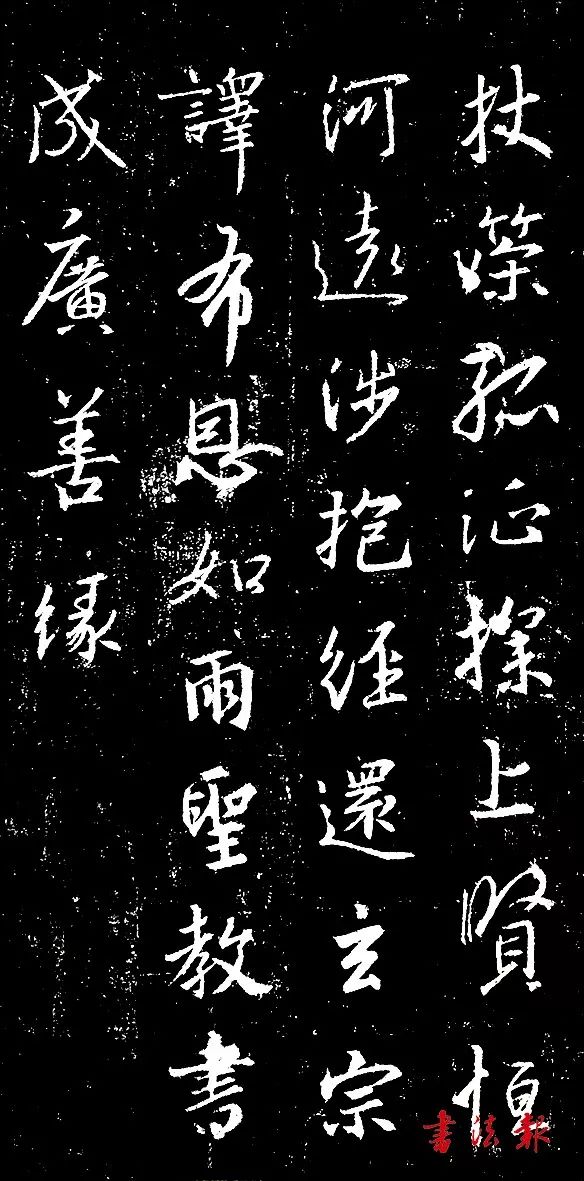 杖策孤征探上賢恒
河遠涉抱經還玄宗
譯布恩如雨聖教書
成廣善緣
書法報